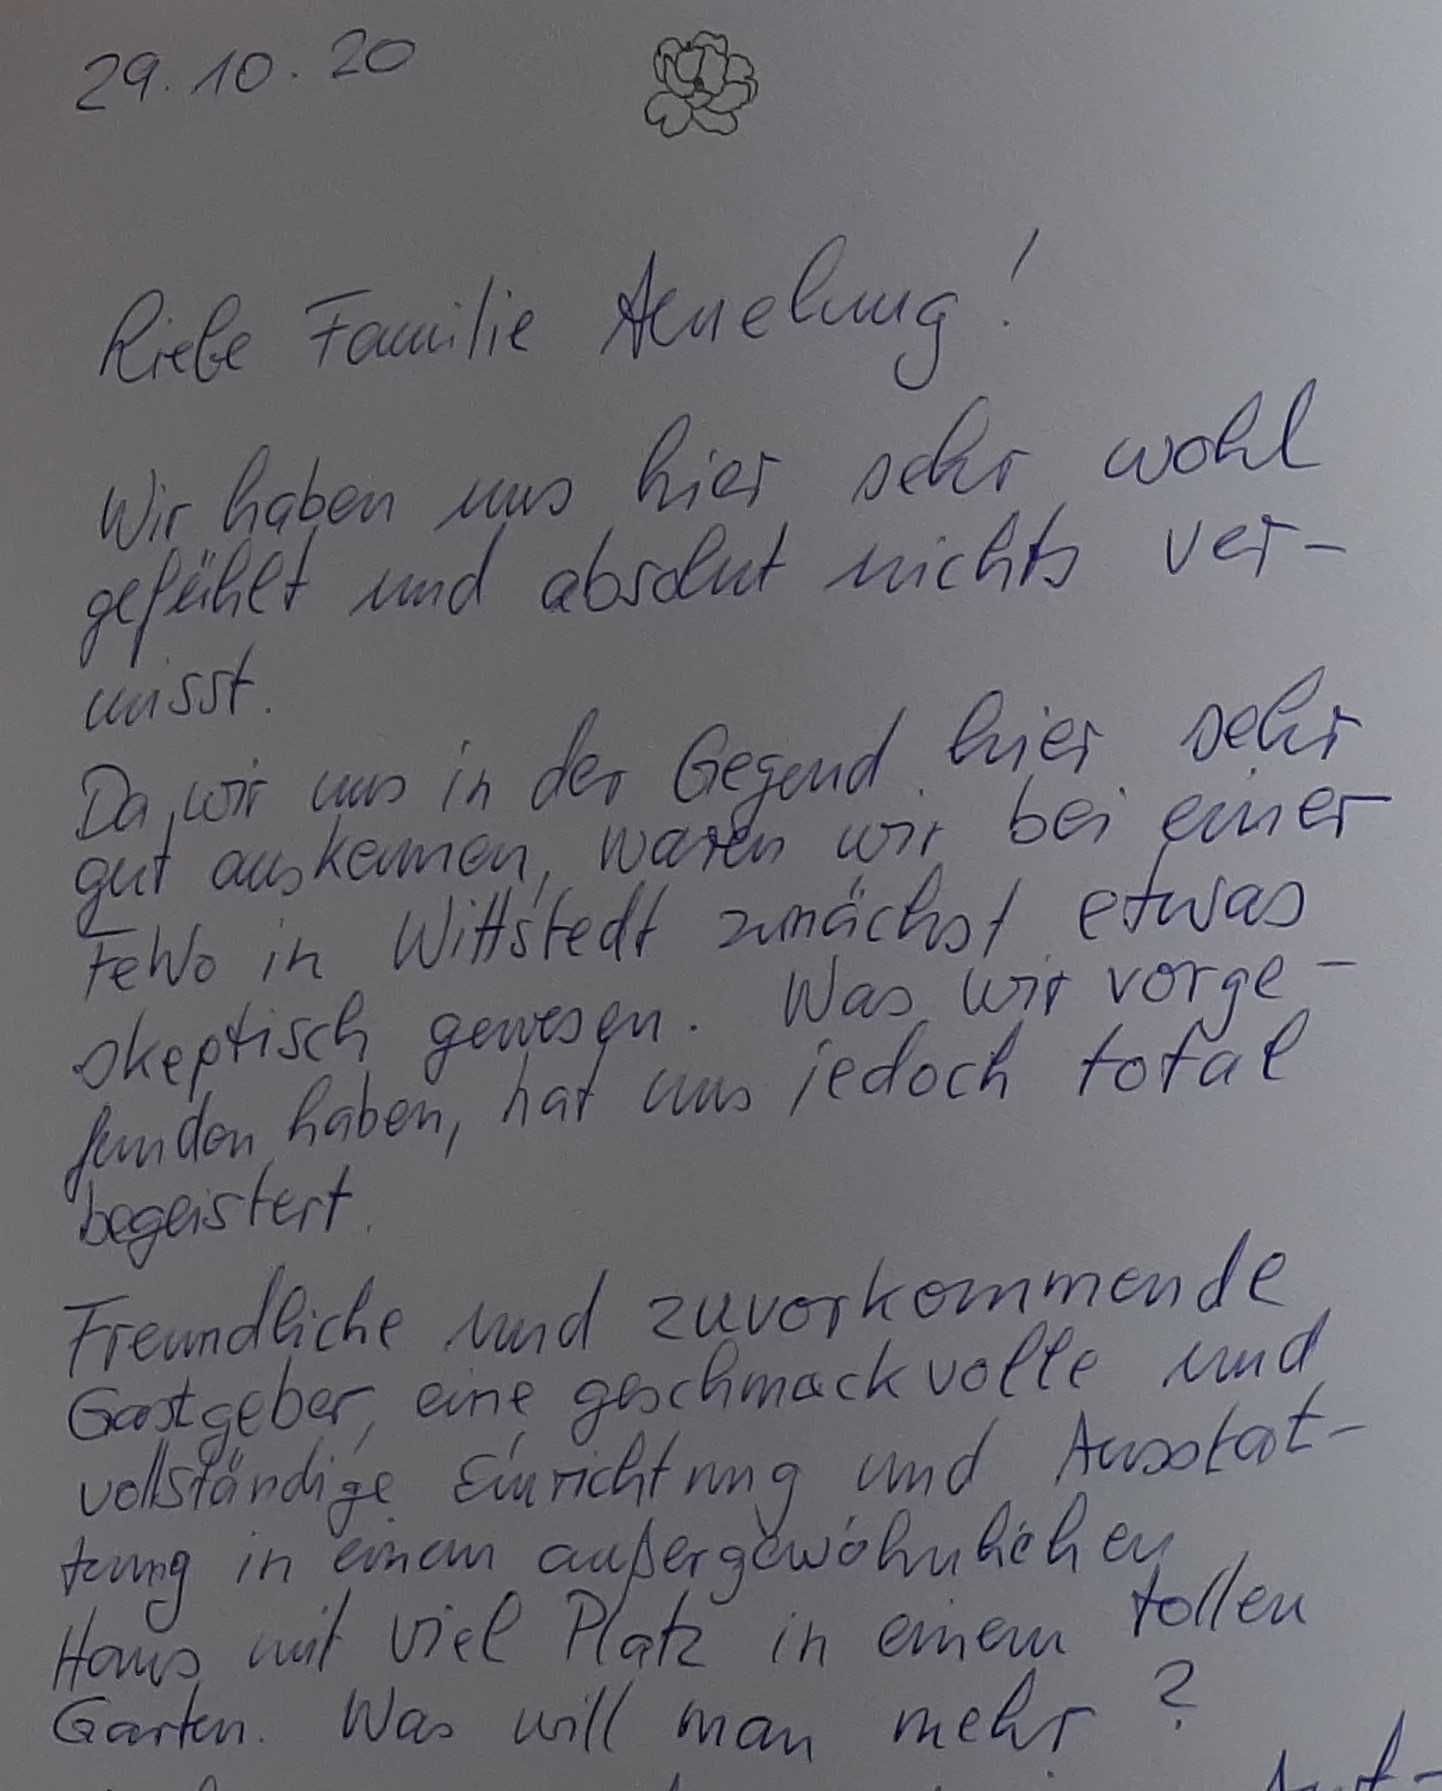 29.10.20
Liebe Familie Amelung!
Wir haben uns hier sehr wohl
gefühlt und absolut nichts ver-
misst.
Da wir uns in der Gegend hier sehr
gut auskennen, waren wir bei einer
FeWo in Wittstedt zunächst etwas
skeptisch gewesen. Was wir vorge-
funden haben, hat uns jedoch total
begeistert.
Freundliche und zuvorkommende
Gastgeber, eine geschmackvolle und
vollständige Einrichtung und Ausstat-
tung in einem außergewöhnlichen
Haus mit viel Platz in einem tollen
Garten. Was will man mehr?